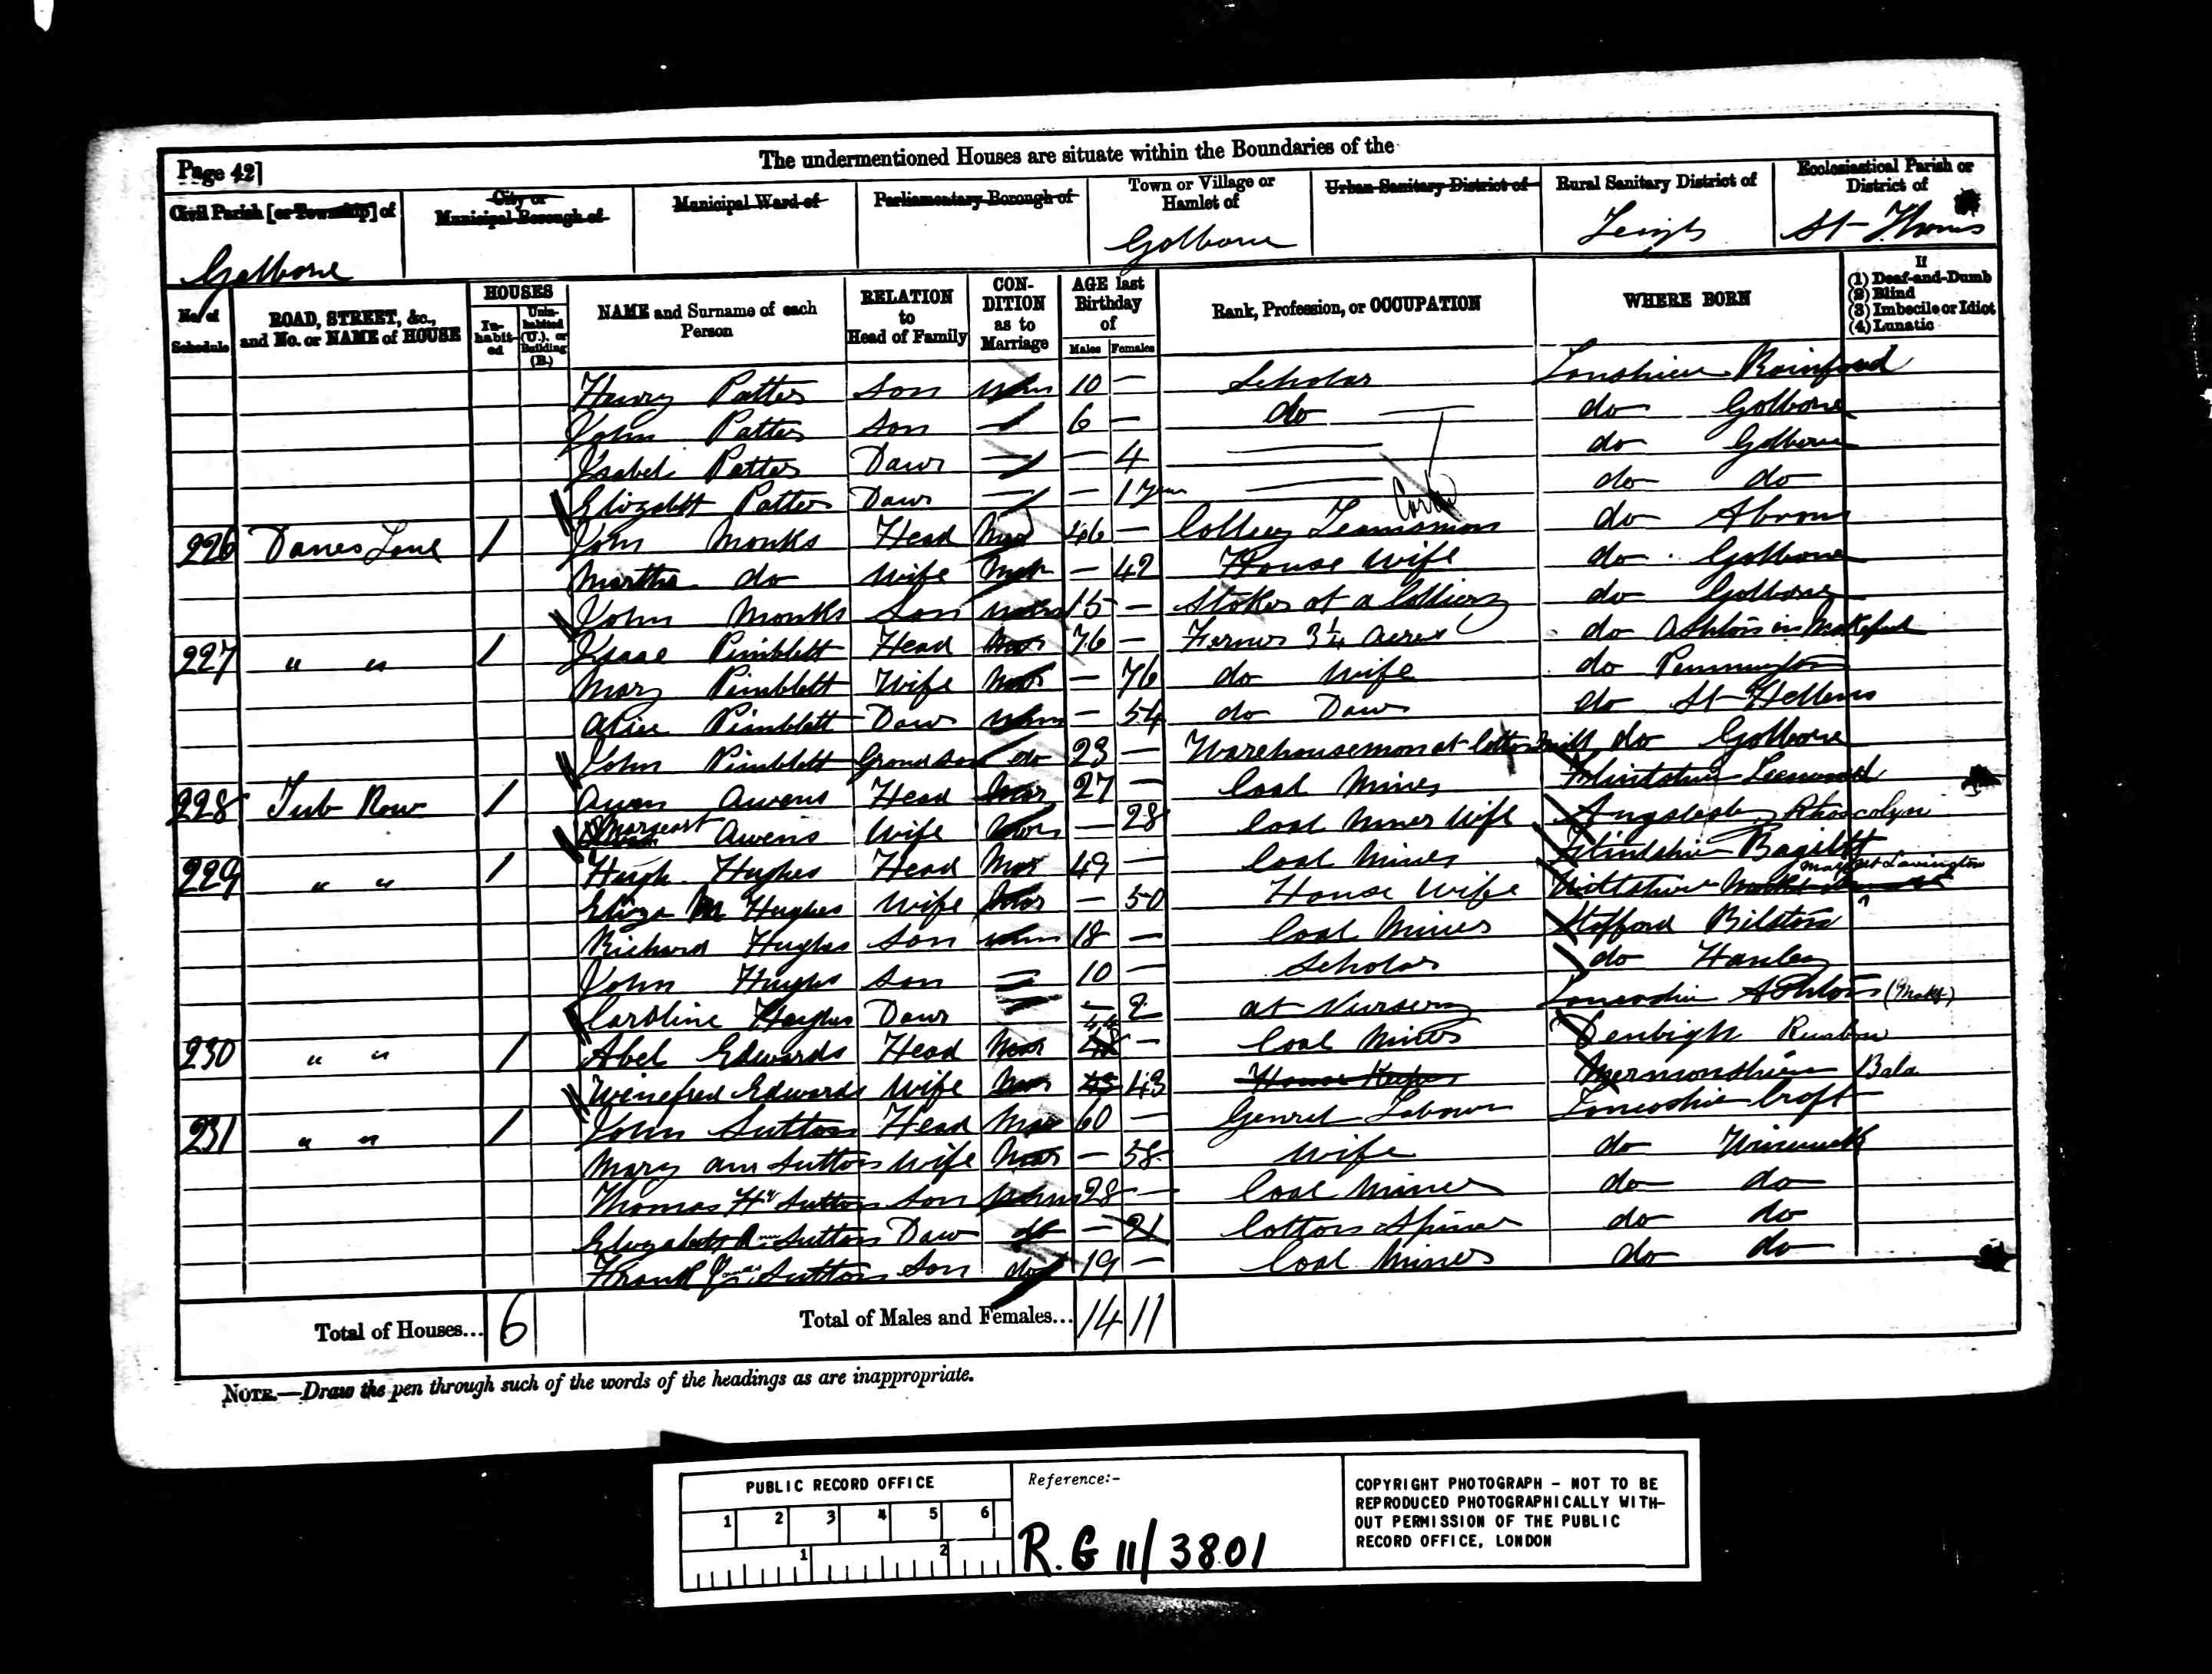 Page 42]
The undermentioned Houses are situate within the Boundaries of the
Civil Parish [or Township] of
City or Municipal Borough of
Municipal Ward of
Parliamentary Borough of
Town or Village or Hamlet of
Urban Sanitary District of
Rural Sanitary District of
Ecclesiastical Parish or District of
Golborne
Golborne
Leigh
St Thomas
No. of Schedule
ROAD, STREET, &c., and No. or NAME of HOUSE
HOUSES
In-habit-ed
Unin-habited (U.), or Building (B.)
NAME and Surname of each Person
RELATION to Head of Family
CON-DITION as to Marriage
AGE last Birthday of
Males Females
Rank, Profession, or OCCUPATION
WHERE BORN
If
(1) Deaf-and-Dumb
(2) Blind
(3) Imbecile or Idiot
(4) Lunatic
Henry Patter Son Unm 10 — Scholar Lanshire Rainford
John Patter Son 6 — do do Golborne
Isabel Patter Daur — 4 do Golborne
Elizabeth Patter Daur — 1 do do
226 Danes Lane 1 John Monks Head Mar 46 — Colliery Teamsman do Abram
Martha do Wife Mar — 42 House Wife do Golborne
John Monks Son Unm 15 — Stoker at a Colliery do Golborne
227 " " 1 Isaac Pimblett Head Mar 76 — Farmer 3¼ acres do Ashton in Makefield
Mary Pimblett Wife Mar — 76 do Wife do Pennington
Alice Pimblett Daur Unm — 54 do Daur do St Hellens
John Pimblett Grand Son do 23 — Warehouseman at Cotton Mill do Golborne
228 Tub Row 1 Owen Owens Head Mar 27 — Coal Miner Flintshire Leeswood
Margeart Owens Wife Mar — 28 Coal Miner Wife Anglesea Rhoscolyn
229 " " 1 Hugh Hughes Head Mar 49 — Coal Miner Flintshire Bagillt
Eliza M Hughes Wife Mar — 50 House Wife Wiltshire Market Lavington
Richard Hughes Son Unm 18 — Coal Miner Stafford Bilston
John Hughes Son 10 — Scholar do Hanley
Caroline Hughes Daur — 2 at Nursery Lancashire Ashton (Makf)
230 " " 1 Abel Edwards Head Mar 44 — Coal Miner Denbigh Ruabon
Winefred Edwards Wife Mar 43 43 House Keeper Merionethshire Bala
231 " " 1 John Sutton Head Mar 60 — Genrel Labour Lancashire Croft
Mary Ann Sutton Wife Mar — 58 Wife do Winwick
Thomas Hy Sutton Son Unm 28 — Coal Miner do do
Elizabeth Ann Sutton Daur do — 21 Cotton Spiner do do
Frank James Sutton Son do 19 — Coal Miner do do
Total of Houses... 6
Total of Males and Females... 14 11
NOTE.—Draw the pen through such of the words of the headings as are inappropriate.
PUBLIC RECORD OFFICE
1 2 3 4 5 6
1 2
Reference:-
R.G 11/3801
COPYRIGHT PHOTOGRAPH - NOT TO BE
REPRODUCED PHOTOGRAPHICALLY WITH-
OUT PERMISSION OF THE PUBLIC
RECORD OFFICE, LONDON